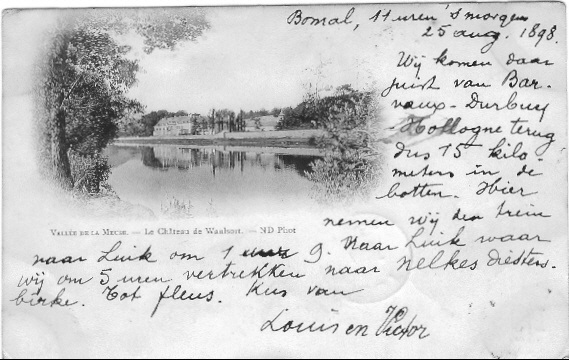 Bomal, 11 uren 's morgens
25 aug. 1898.
Wij komen daar
juist van Bar-
vaux - Durbuy
- Hollogne terug
dus 15 kilo-
meters in de
botten. Hier
nemen wij den trein
naar Luik om 1 uur 9. Naar Luik waar
wij om 5 uren vertrekken naar
birke. Tot fleus. Kus van
Louis en Victor
VALLÉE DE LA MEUSE. — Le Château de Waulsort. — ND Phot